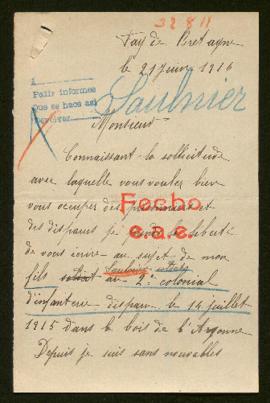 32811
Fay de Bretagne
le 21 Janvier 1916
1
Pedir informes
Que se hace así
Saulnier
Monsieur
Connaissant la sollicitude
avec laquelle vous voulez bien
vous occuper des prisonniers et
Fecho
des disparus je prends la liberté
e.a.e.
de vous écrire au sujet de mon
fils Saulnier soldat au 2e colonial
d'infanterie disparu le 14 juillet
1915 dans le bois de l'Argonne
Depuis je suis sans nouvelles